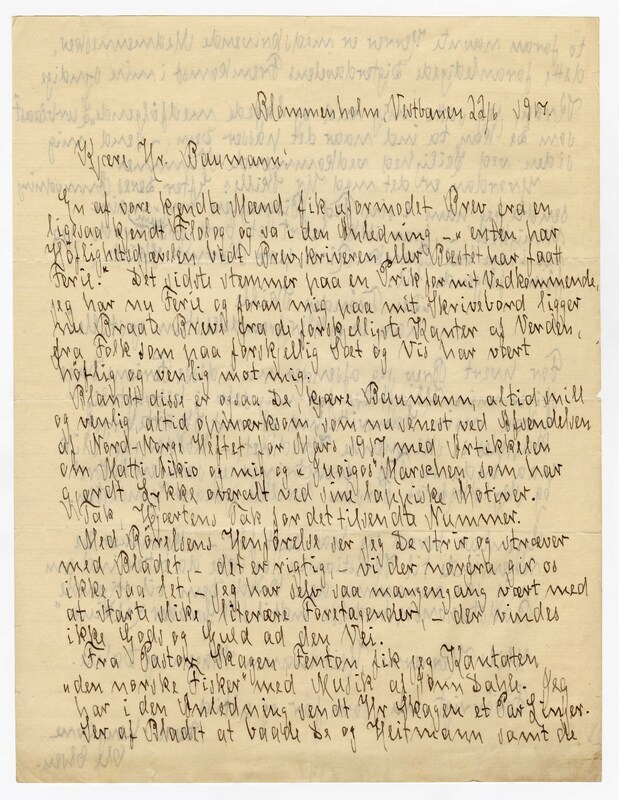 Blommenholm, Vestbanen 22/6 1917.
Kjære Hr. Baumann!
En af vore kjendte Mænd fik uformodet Brev fra en
ligesaa kjendt Filolog og sa i den Anledning – "enten har
Höflighedsdjævelen bidt Brevskriveren eller Bæstet har faat
Ferie." Det sidste stemmer paa en Prik for mit Vedkommende,
jeg har nu Ferie og foran mig paa mit Skrivebord ligger
Breve fra de forskelligste Kanter af Verden,
fra Folk som paa forskellig Sæt og Vis har vært
höflig og venlig mot mig.
Blandt disse er ogsaa De, kjære Baumann, altid snill
og venlig altid opmærksom som nu senest ved Afsendelsen
af Nord-Norge Heftet for Mars 1917 med Artikkelen
om Matti Aikio og mig og "Juoigos" Marschen som har
gjordt Lykke overalt ved sine lappiske Motiver.
Tak, Hjærtens Tak for det tilsendte Nummer.
Med Rörelsens Henförelse ser jeg De strir og stræver
med Bladet, – det er rigtig – vi der norera gir os
ikke saa let, – jeg har selv saa mangengang vært med
at starte slike literære Foretagender, – der vindes
ikke Gods og Guld ad den Vei.
Fra Pastor Skagen Fenton, fik jeg Kantaten
"den norske Fisker" med Musik af John Dahle. Jeg
har i den Anledning sendt Hr Skagen et Par Linjer.
Ser af Bladet at baade De og Heitmann samt de